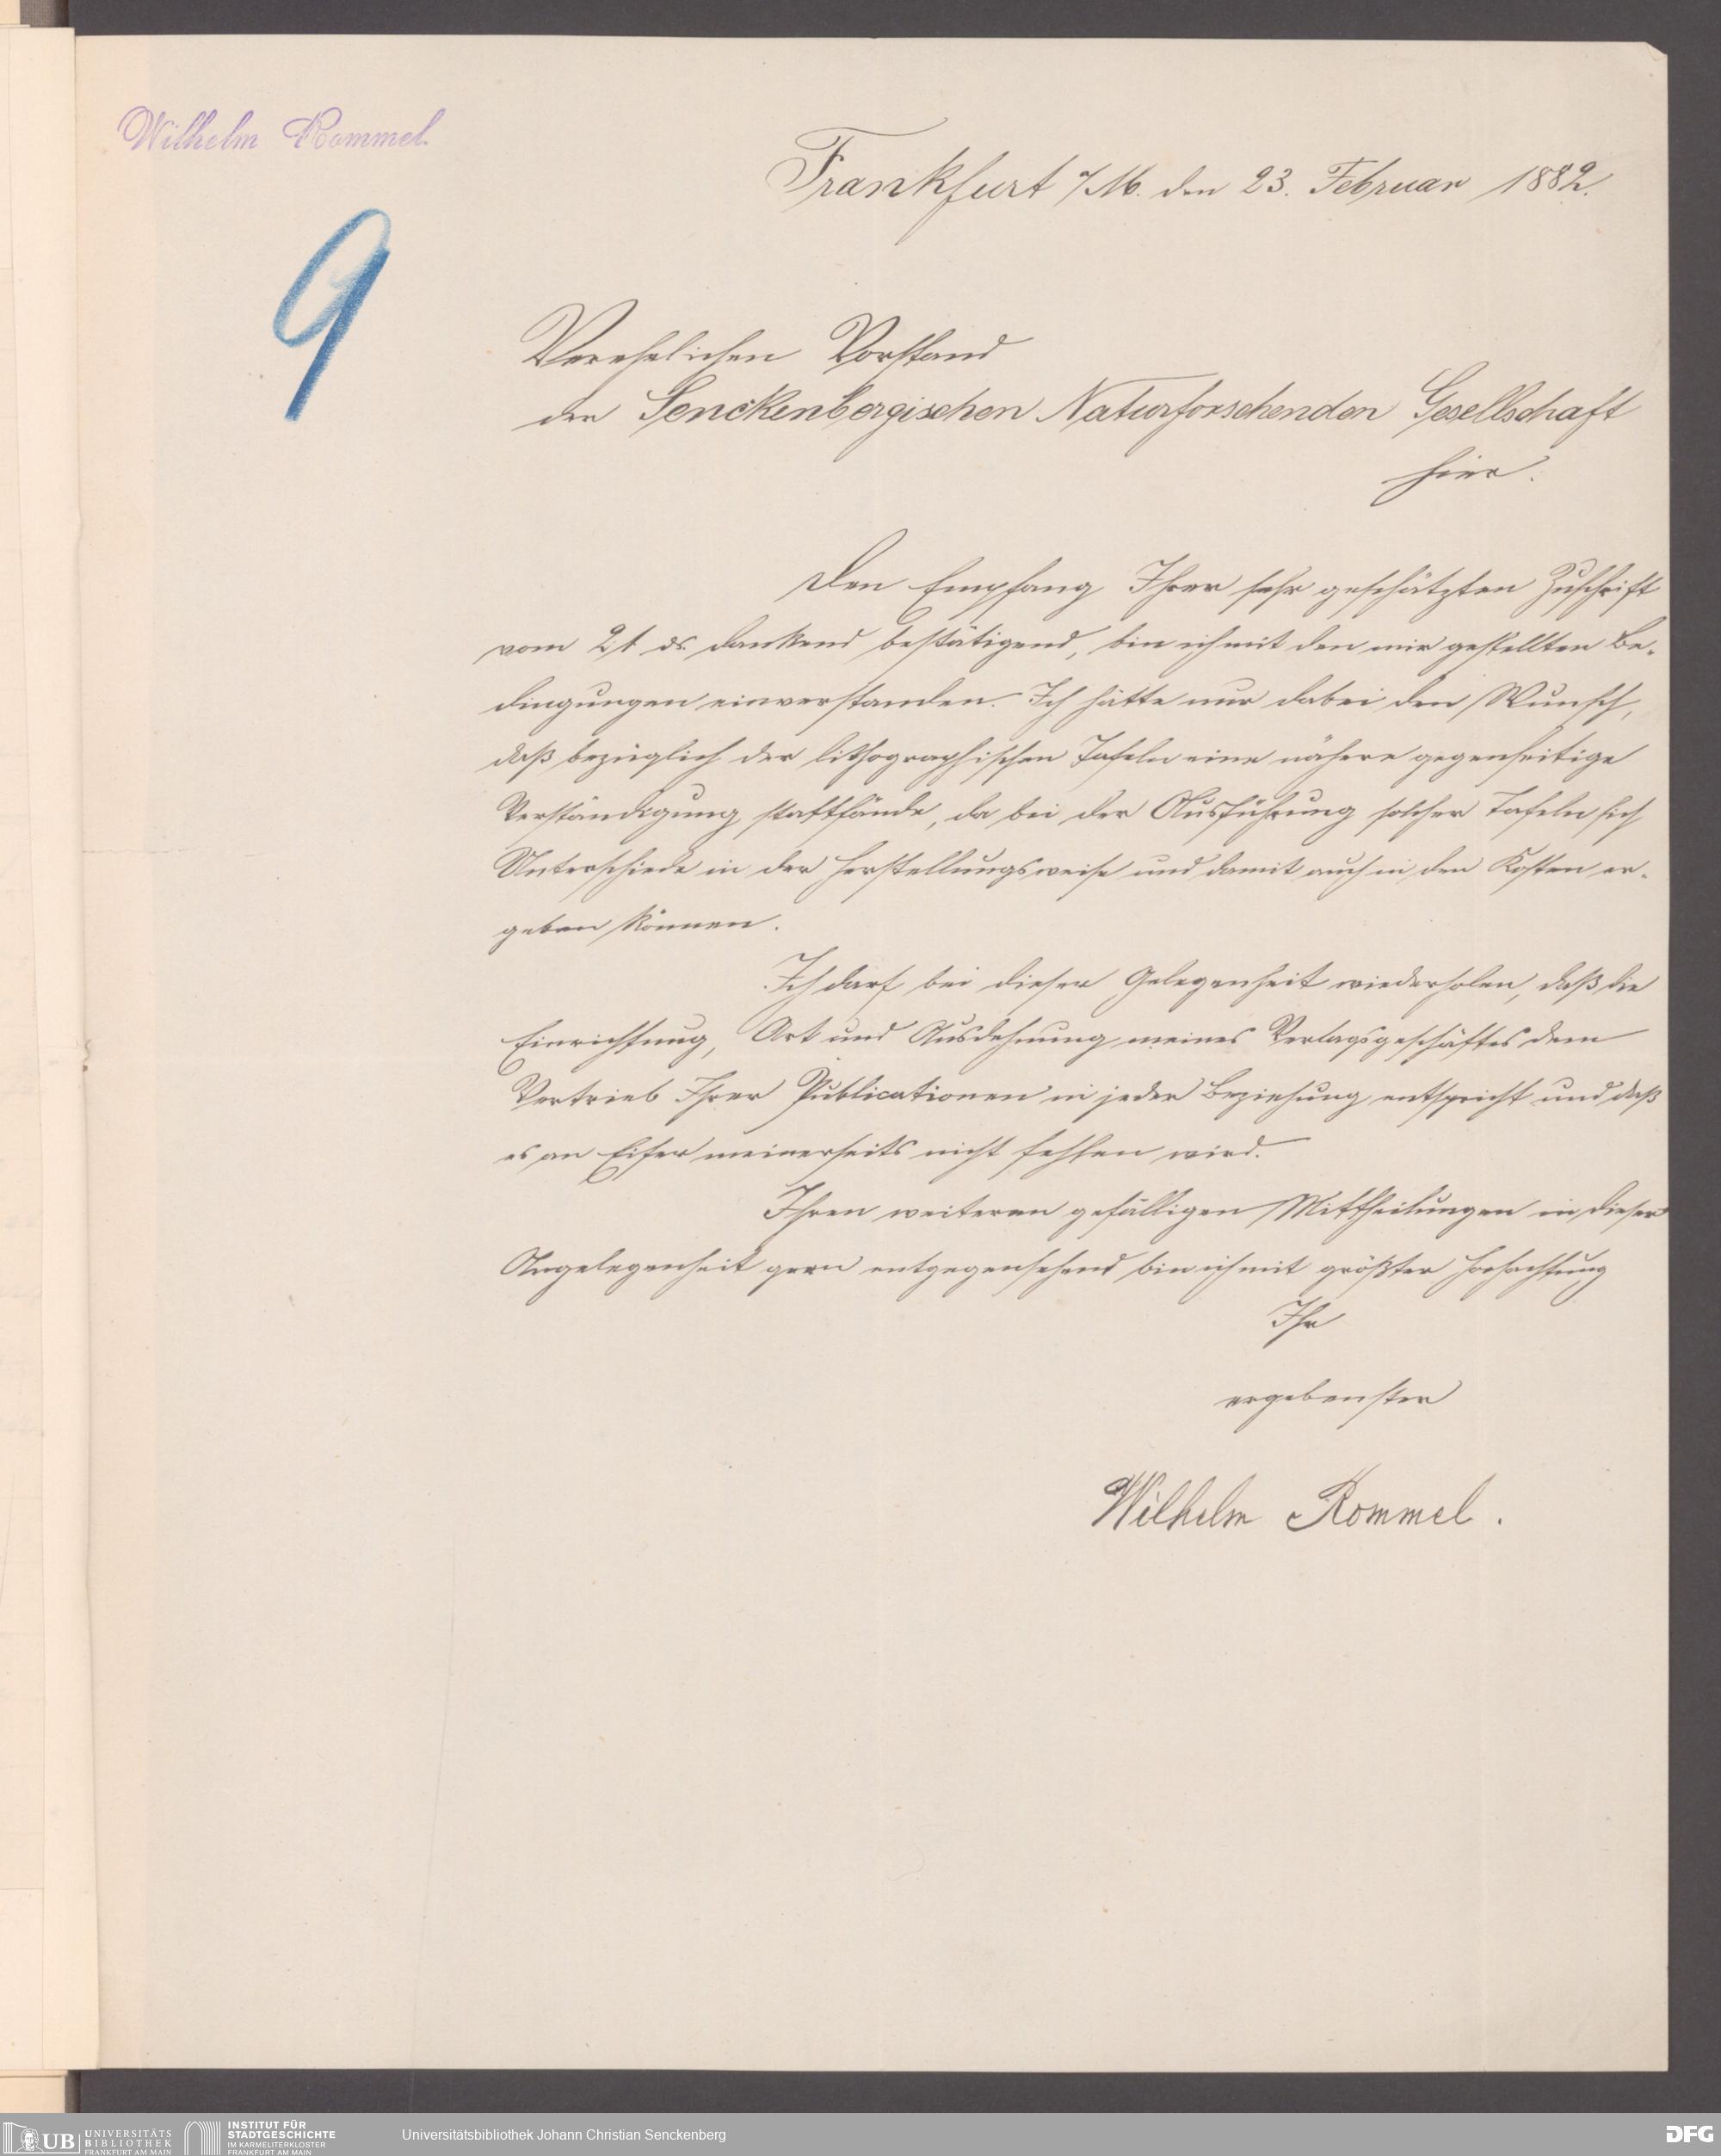 Wilhelm Rommel.
Frankfurt a/M. den 23. Februar 1882.
9
Verehrlichen Vorstand
der Senckenbergischen Naturforschenden Gesellschaft
hier.
Den Empfang Ihrer sehr geschätzten Zuschrift
vom 21 ds. dankend bestätigend, bin ich mit den mir gestellten Be-
dingungen einverstanden. Ich hätte nur dabei den Wunsch,
daß bezüglich der lithographischen Tafeln eine nähere gegenseitige
Verständigung stattfände, da bei der Ausführung solcher Tafeln sich
Unterschiede in der Herstellungsweise und damit auch in den Kosten er-
geben können.
Ich darf bei dieser Gelegenheit wiederholen, daß die
Einrichtung, Art und Ausdehnung meines Verlagsgeschäftes dem
Vertrieb Ihrer Publicationen in jeder Beziehung entspricht und daß
es an Eifer meinerseits nicht fehlen wird.
Ihren weiteren gefälligen Mittheilungen in dieser
Angelegenheit gern entgegensehend bin ich mit größter Hochachtung
Ihr
ergebenster
Wilhelm Rommel.
UB UNIVERSITÄTS BIBLIOTHEK FRANKFURT AM MAIN
INSTITUT FÜR STADTGESCHICHTE IM KARMELITERKLOSTER FRANKFURT AM MAIN
Universitätsbibliothek Johann Christian Senckenberg
DFG